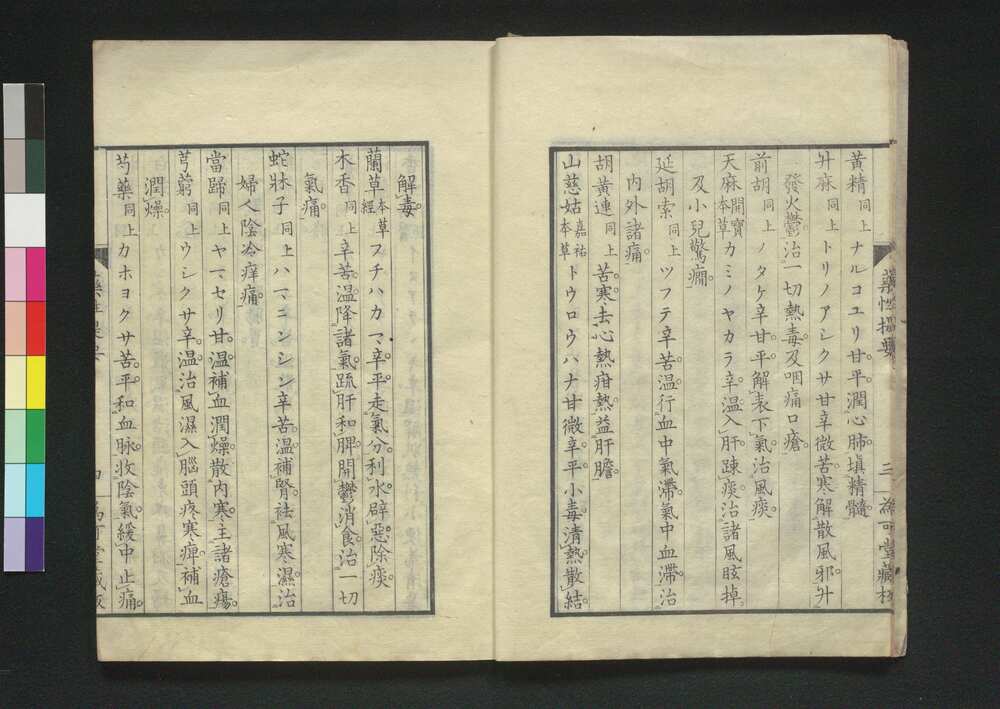 黃精同上ナルコユリ甘。平。潤心肺。塡精髓。
升麻同上トリノアシクサ甘辛微苦。寒。解散風邪。升
發火鬱。治一切熱毒。及咽痛口瘡。
前胡同上ノタケ辛甘。平。解表下氣。治風痰。
天麻開寶本草カミノヤカラ辛。温。入肝。踈痰。治諸風眩掉。
及小兒驚癇。
延胡索同上ツフテ辛苦温。行血中氣滯。氣中血滯。治
内外諸痛。
胡黃連同上苦。寒。去心熱疳熱。益肝膽。
山慈姑嘉祐本草トウロウハナ甘微辛。平。小毒。清熱。散結。
藥性摘要
三
解毒。
蘭草本草經フチハカマ。辛。平。走氣分。利水。辟惡。除痰
木香同上辛苦。温。降諸氣。疏肝和脾。開鬱。消食。治一切
氣痛。
蛇牀子同上ハマニンシン辛苦。温。補腎。祛風寒濕。治
婦人陰冷痒痛。
當歸同上ヤマセリ甘。温。補血潤燥。散内寒。主諸瘡瘍。
芎藭同上ウシクサ辛。温。治風濕入腦。頭疼寒痺。補血
潤燥。
芍藥同上カホヨクサ苦。平。和血脉。收陰氣。緩中止痛。